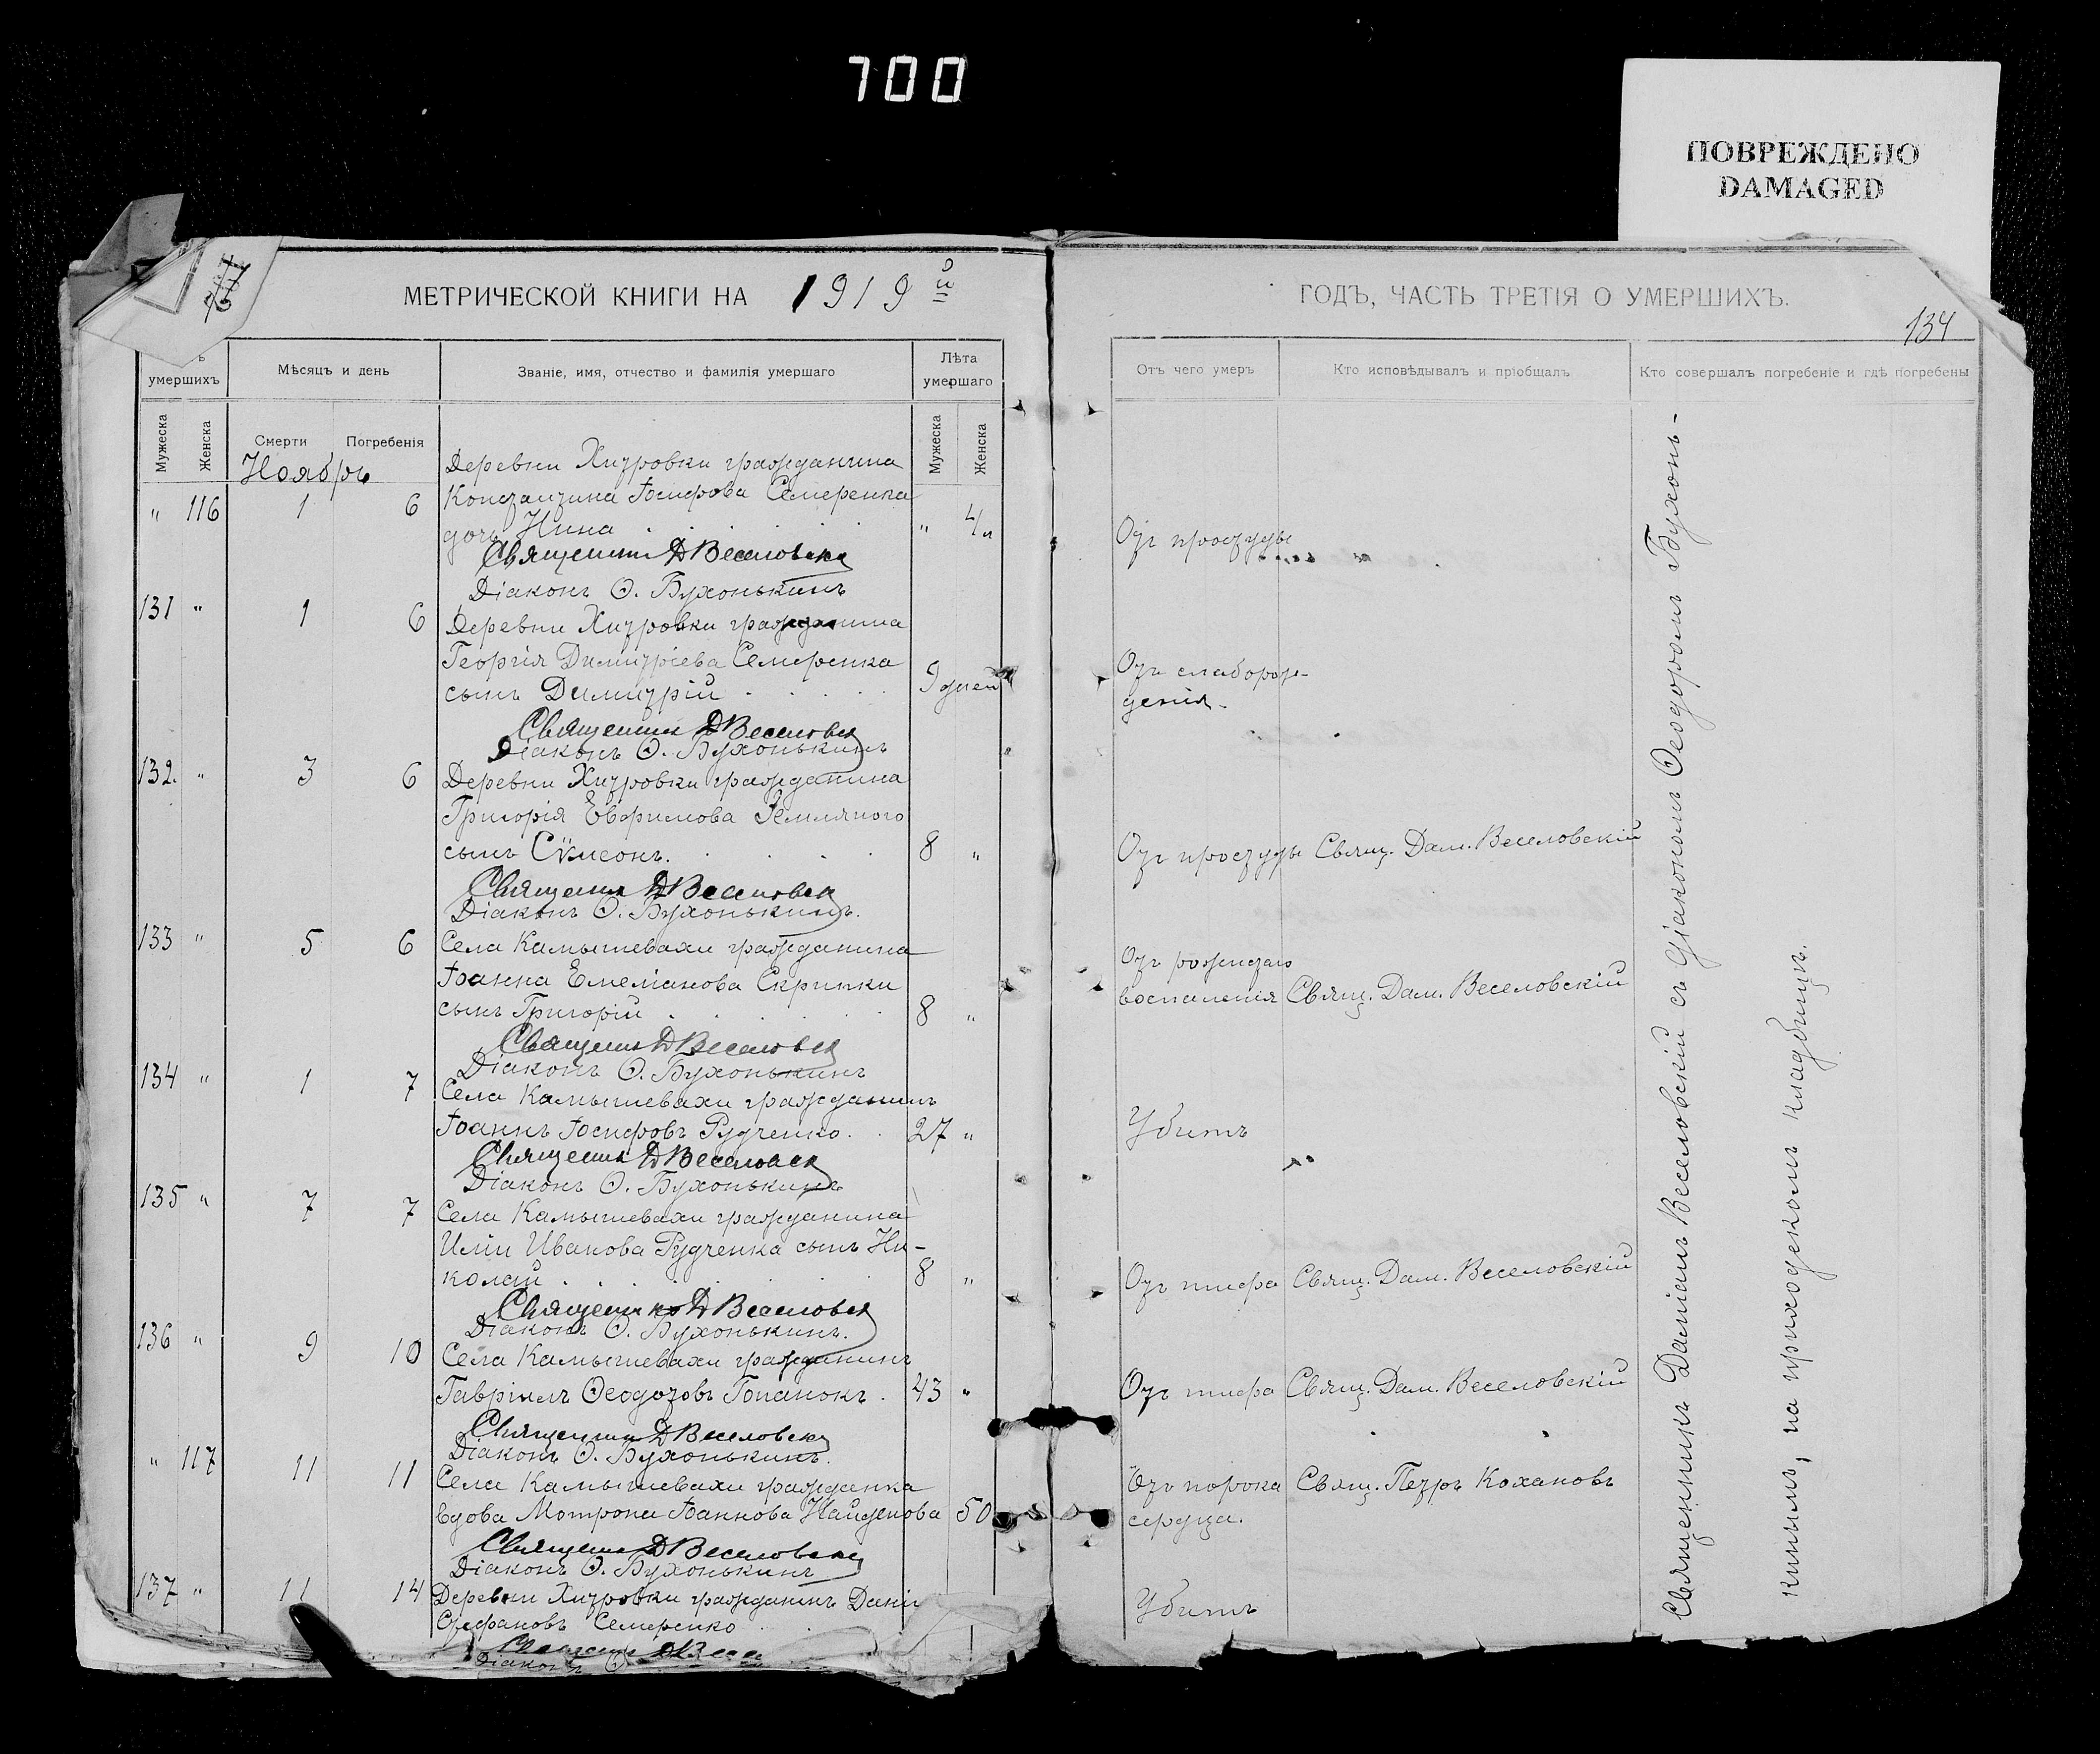 700
ПОВРЕЖДЕНО
DAMAGED
МЕТРИЧЕСКОЙ КНИГИ НА 1919й
ГОДЪ, ЧАСТЬ ТРЕТІЯ О УМЕРШИХЪ.
134
умершихъ
Мѣсяцъ и день
Званіе, имя, отчество и фамилія умершаго
Лѣта умершаго
Отъ чего умеръ
Кто исповѣдывалъ и пріобщалъ
Кто совершалъ погребеніе и гдѣ погребены
Мужеска
Женска
Смерти
Погребенія
Мужеска
Женска
Ноябрь
Деревни Хитровки гражданина
" 116 1 6 Константина Іосифова Семеренка
дочь Нина . . . . . " 4 л Отъ простуды
Священникъ Д Веселовскій
Діаконъ Ѳ. Бухонькинъ
131 " 1 6 Деревни Хитровки гражданина
Георгія Димитріева Семеренка
сынъ Димитрій . . . . 9 дней Отъ слаборож-
денія.
Священникъ Д Веселовскій
Діаконъ Ѳ. Бухонькинъ
132. " 3 6 Деревни Хитровки гражданина
Григорія Евфимова Земляного
сынъ Сѵмеонъ. . . . . 8 " Отъ простуды Свящ. Дам. Веселовскій
Священникъ Д Веселовскій
Діаконъ Ѳ. Бухонькинъ.
133 " 5 6 Села Камышевахи гражданина
Іоанна Емеліанова Скрипки
сынъ Григорій . . . . . 8 " Отъ рожистаго
воспаленія Свящ. Дам. Веселовскій
Священникъ Д Веселовскій
Діаконъ Ѳ. Бухонькинъ
134 " 1 7 Села Камышевахи гражданинъ
Іоаннъ Іосифовъ Рудченко. . 27 " Убитъ
Священникъ Д Веселовскій
Діаконъ Ѳ. Бухонькинъ
135 " 7 7 Села Камышевахи гражданина
Иліи Иванова Рудченка сынъ Ни-
колай . . . . . . . 8 " Отъ тифа Свящ. Дам. Веселовскій
Священникъ Д Веселовскій
Діаконъ Ѳ. Бухонькинъ.
136 " 9 10 Села Камышевахи гражданинъ
Гавріилъ Ѳеодотовъ Гопанокъ . 43 " Отъ тифа Свящ. Дам. Веселовскій
Священникъ Д Веселовскій
Діаконъ Ѳ. Бухонькинъ.
" 117 11 11 Села Камышевахи гражданка
вдова Мотрона Іоаннова Найденова 50 Отъ порока Свящ. Петръ Кохановъ
сердца.
Священникъ Д Веселовскій
Діаконъ Ѳ. Бухонькинъ
137 " 11 14 Деревни Хитровки гражданинъ Дані
Стефановъ Семеренко . . Убитъ
Діаконъ Ѳ
Священникъ Даміанъ Веселовскій съ діакономъ Ѳеодоромъ Бухонь-
кинымъ, на приходскомъ кладбищѣ.